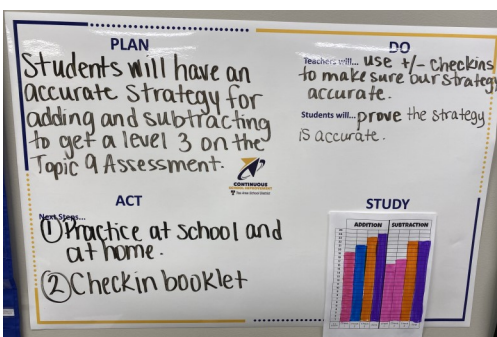 PLAN
Students will have an
accurate strategy for
adding and subtracting
to get a level 3 on the
Topic 9 Assessment.
DO
Teachers will... use +/- checkins
to make sure our strategy
accurate.
Students will... prove the strategy
is accurate.
CONTINUOUS
ACT
Next Steps...
① Practice at school and
at home.
② Checkin booklet
STUDY
ADDITION SUBTRACTION